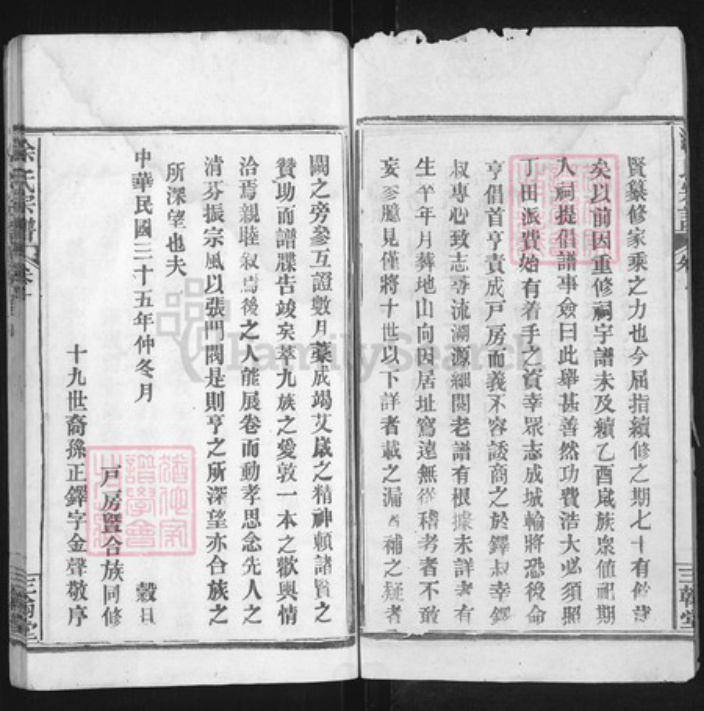 賢纂修家乘之力也今屈指續修之期七十有餘歲
矣以前因重修祠宇譜未及續乙酉歲族衆值祀期
入祠提倡譜事僉曰此舉甚善然功費浩大必須照
丁田派費始有着手之資幸眾志成城輸將恐後命
亨倡首亨責成戶房而義不容諉商之於鐸叔幸鐸
叔專心致志尋流溯源細閱老譜有根據未詳者有
生年月葬地山向因居址寫遠無從稽考者不敢
妄參臆見僅將十世以下詳者載之漏者補之疑者
三翰堂
闕之旁參互證數月藁成竭艾歲之精神賴諸賢之
贊助而譜牒告竣矣萃九族之愛敦一本之歡輿情
洽焉親睦叙焉後之人能展卷而動孝思念先人之
清芬振宗風以張門閥是則亨之所深望亦合族之
所深望也夫
中華民國三十五年仲冬月 穀旦
戶房暨合族同修
十九世裔孫正鐸字金聲敬序
涂氏宗譜 卷首
三翰堂
FamilySearch